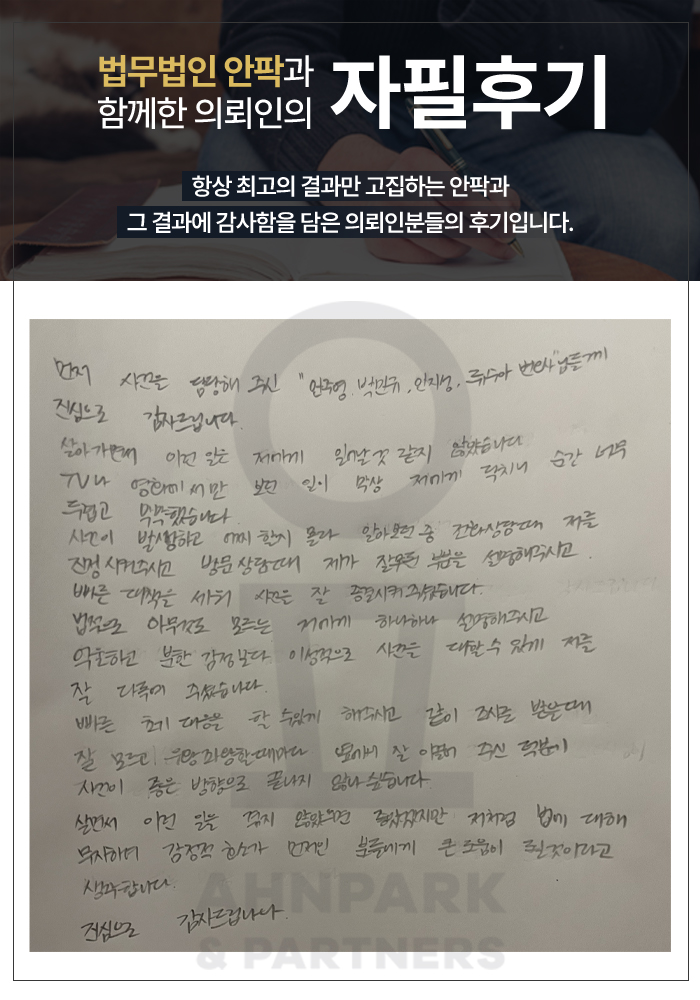 법무법인 안팍과
함께한 의뢰인의
자필후기
항상 최고의 결과만 고집하는 안팍과
그 결과에 감사함을 담은 의뢰인분들의 후기입니다.
먼저 사건을 담당해 주신 " 안주영, 박민규, 안지성, 류수아 변호사"님들께
진심으로 감사드립니다.
살아가면서 이런 일은 저에게 일어날 것 같지 않았습니다
TV나 영화에서만 보던 일이 막상 저에게 닥치니 순간 너무
두렵고 막막했습니다.
사건이 발생하고 어찌 할지 몰라 알아보던 중 전화상담때 저를
진정시켜주시고 방문상담때 제가 잘못된 부분을 설명해주시고.
빠른 대책을 세워 사건을 잘 종결시켜 주셨습니다.
법적으로 아무것도 모르는 저에게 하나하나 설명해주시고
억울하고 분한 감정보다 이성적으로 사건을 대할 수 있게 저를
잘 다독여 주셨습니다.
빠른 초기 대응을 할 수있게 해주시고 같이 조사를 받을때
잘 모르고 우왕좌왕할때마다 옆에서 잘 이끌어 주신 덕분에
사건이 좋은 방향으로 끝나지 않나 싶습니다.
살면서 이런 일을 겪지 않았으면 좋았겠지만 저처럼 법에 대해
무지하며 감정적 호소가 먼저인 분들에게 큰 도움이 될것이라고
생각합니다.
진심으로 감사드립니다.
AHNPARK
& PARTNERS